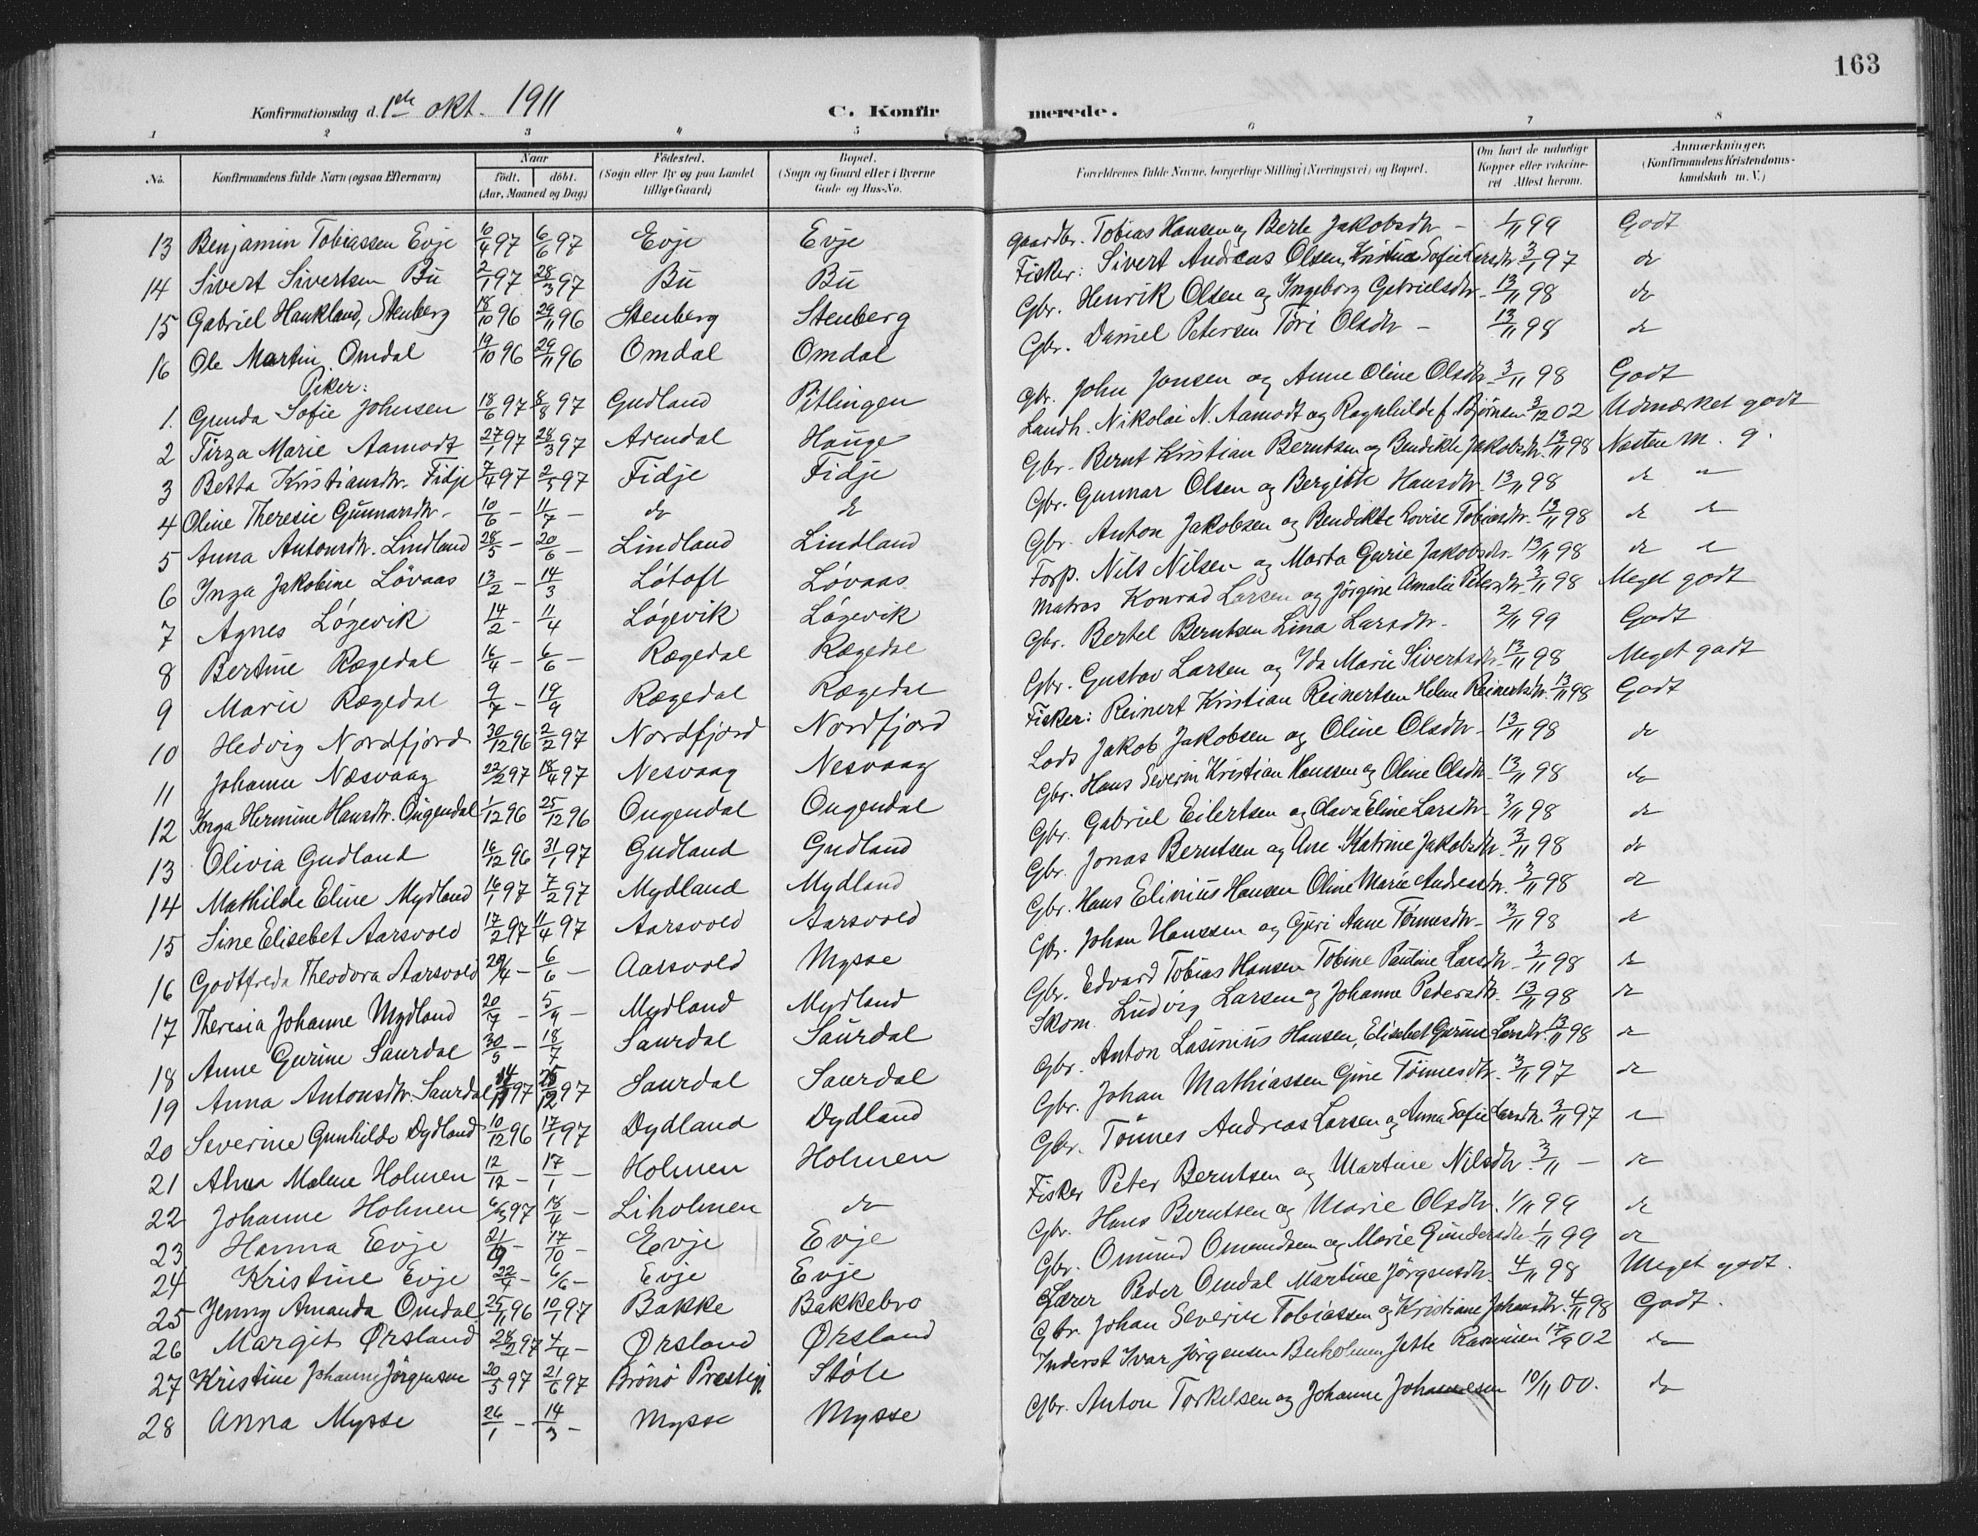 163
Konfirmationsdag d. 1ste okt. 1911 C. Konfirmerede.
1 2 3 4 5 6 7 8
No. Konfirmandens fulde Navn (ogsaa Efternavn) Naar födt. döbt. (Aar, Maaned og Dag) Födested. (Sogn eller By og paa Landet tillige Gaard) Bopæl. (Sogn og Gaard eller i Byerne Gade og Hus-No. Forældrenes fulde Navne, borgerlige Stilling (Næringsvei) og Bopæl. Om havt de naturlige Kopper eller vakcineret Attest herom. Anmærkninger. (Konfirmandens Kristendomskundskab m. V.)
13 Benjamin Tobiassen Evje 6/4 97 6/6 97 Evje Evje Gaardbr. Tobias Hansen og Berte Jakobsdtr - 1/11 99 Godt
14 Sivert Sivertsen Bu 2/1 97 28/3 97 Bu Bu Fisker: Sivert Andreas Olsen, Kristine Sofie Larsdtr 3/11 97 do
15 Gabriel Haukland, Stenberg 18/10 96 29/11 96 Stenberg Stenberg Gbr. Henrik Olsen og Ingeborg Gabrielsdtr. 13/11 98 do
16 Ole Martin Omdal 19/10 96 29/11 96 Omdal Omdal Gbr. Daniel Petersen Tori Olsdtr - 13/11 98 do
Piker:
1. Gunda Sofie Johnsen 18/6 97 8/8 97 Gudland Pitlingen Gbr. John Jonsen og Anne Oline Olsdtr. 3/11 98 Godt
2 Tirza Marie Aamodt 27/1 97 28/3 97 Arendal Hauge Landh. Nikolai N. Aamodt og Ragnhild f. Bjørnsen 3/12 02 Udmærket godt
3 Betta Kristiansdtr. Fidje 7/4 97 2/5 97 Fidje Fidje Gbr. Bernt Kristian Berntsen og Bendikte Jakobsdtr. 13/11 98 Næsten m. g.
4 Oline Theresie Gunnarsdtr. 10/6 - 11/7 - do do Gbr. Gunnar Olsen og Bergitte Hansdtr. 13/11 98 do "
5 Anna Antonsdtr. Lindland 28/5 - 20/6 - Lindland Lindland Gbr. Anton Jakobsen og Bendikte Lovise Tobiasdtr. 13/11 98 do do
6 Inga Jakobine Lövaas 13/2 - 14/3 Lótoft Lóvaas Forp. Nils Nilsen og Marta Gurie Jakobsdtr. 13/11 98 do do
7 Agnes Lógevik 14/2 - 11/4 Lógevik Lógevik Matros Konrad Larsen og Jörgine Amalie Petersdtr. 3/11 98 Meget godt
8 Bertine Rægedal 16/4 - 6/6 - Rægedal Rægedal Gbr. Bertel Berntsen Lina Larsdtr. 2/11 99 Godt
9 Marie Rægedal 9/7 - 19/9 Rægedal Rægedal Gbr. Gustav Larsen og Ida Marie Sivertsdtr. 13/11 98 Meget godt
10 Hedvig Nordfjord 30/12 96 2/2 97 Nordfjord Nordfjord Fisker: Reinert Kristian Reinertsen Helene Reinertsdtr. 13/11 98 Godt
11 Johanne Næsvaag 22/2 97 18/4 97 Nesvaag Nesvaag Lods Jakob Jakobsen og Oline Olsdtr. 13/11 98 do
12 Inga Hermine Hansdtr. Ougendal 1/12 96 25/12 96 Ougendal Ougendal Gbr. Hans Severin Kristian Hanssen og Oline Olsdtr. 13/11 98 do
13 Olivia Gudland 16/12 96 31/1 97 Gudland Gudland Gbr. Gabriel Eilertsen og Olava Eline Larsdtr. 3/11 98 do
14 Mathilde Eline Mydland 16/1 97 7/2 97 Mydland Mydland Gbr. Jonas Berntsen og Ane Katrine Jakobsdtr. 3/11 98 do
15 Sine Elisebet Aarsvold 17/2 97 11/4 97 Aarsvold Aarsvold Gbr. Hans Elinius Hansen Oline Marie Andreasdtr. 3/11 98 do
16 Godtfreda Theodora Aarsvold 29/4 - 6/6 - Aarsvold Mysse Gbr. Johan Hanssen og Guri Anne Tönnesdtr. 3/11 98 do
17 Theresia Johanne Mydland 20/7 - 5/9 - Mydland Mydland Gbr. Edvard Tobias Hansen Tobine Pauline Larsdtr. 3/11 98 do
18 Anne Gurine Saurdal 30/5 - 18/7 Saurdal Saurdal Skom. Ludvig Larsen og Johanne Pedersdtr. 13/11 98 do
19 Anna Antonsdtr. Saurdal 97 97 Saurdal Saurdal Gbr. Anton Lasinius Hansen, Elisebet Gurine Larsdtr. 13/11 98 do
20 Severine Gunhilde Dydland 10/12 96 17/1 97 Dydland Dydland Gbr. Johan Mathiassen Gine Tönnesdtr. 3/11 97 do
21 Malene Holmen 12/12 - 17/1 - Holmen Holmen Gbr. Tönnes Andreas Larsen og Anna Sofie Larsdtr. 3/11 97 do
22 Johanne Holmen 6/3 97 18/4 - Liholmen do Fisker Peter Berntsen og Martine Nilsdtr. 3/11 - do
23 Hanna Evje 21/9 - 17/10 - Evje Evje Gbr. Hans Berntsen og Marie Olsdtr. 1/11 99 do
24 Kristine Evje 22/4 - 6/6 - Evje Evje Gbr. Omund Omundsen og Marie Gundersdtr. 1/11 99 do
25 Jenny Amanda Omdal 25/11 96 10/1 97 Bakke Bakkebro Lærer Peder Omdal Martine Jörgensdtr. 4/11 98 Meget godt.
26 Margit Ørsland 28/2 97 4/4 - Ørsland Ørsland Gbr. Johan Severin Tobiassen og Kristiane Johansdtr. 4/11 98 Godt.
27 Kristine Johanne Jörgensen 20/5 97 21/6 97 Brönö Prestegj Stóle Inderst Ivar Jörgensen Jette Rasmusen 17/9 02 do
28 Anna Mysse 26/1 - 14/3 - Mysse Mysse Gbr. Anton Torkilsen og Johanne Johannesen 10/11 00. do